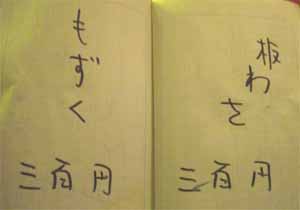 板わさ
三百円
もずく
三百円